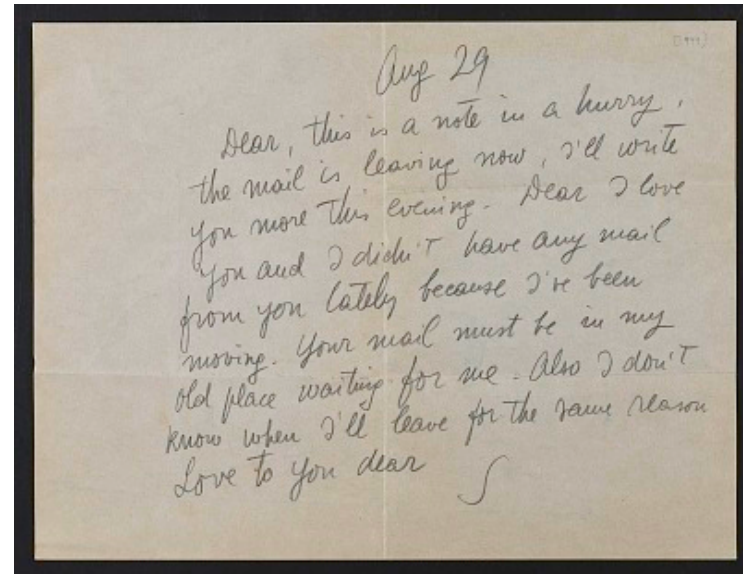 Aug 29
Dear, this is a note in a hurry,
the mail is leaving now, I'll write
you more this evening. Dear I love
you and I didn't have any mail
from you lately because I've been
moving. Your mail must be in my
old place waiting for me. Also I don't
know when I'll leave for the same reason
Love to you dear
S